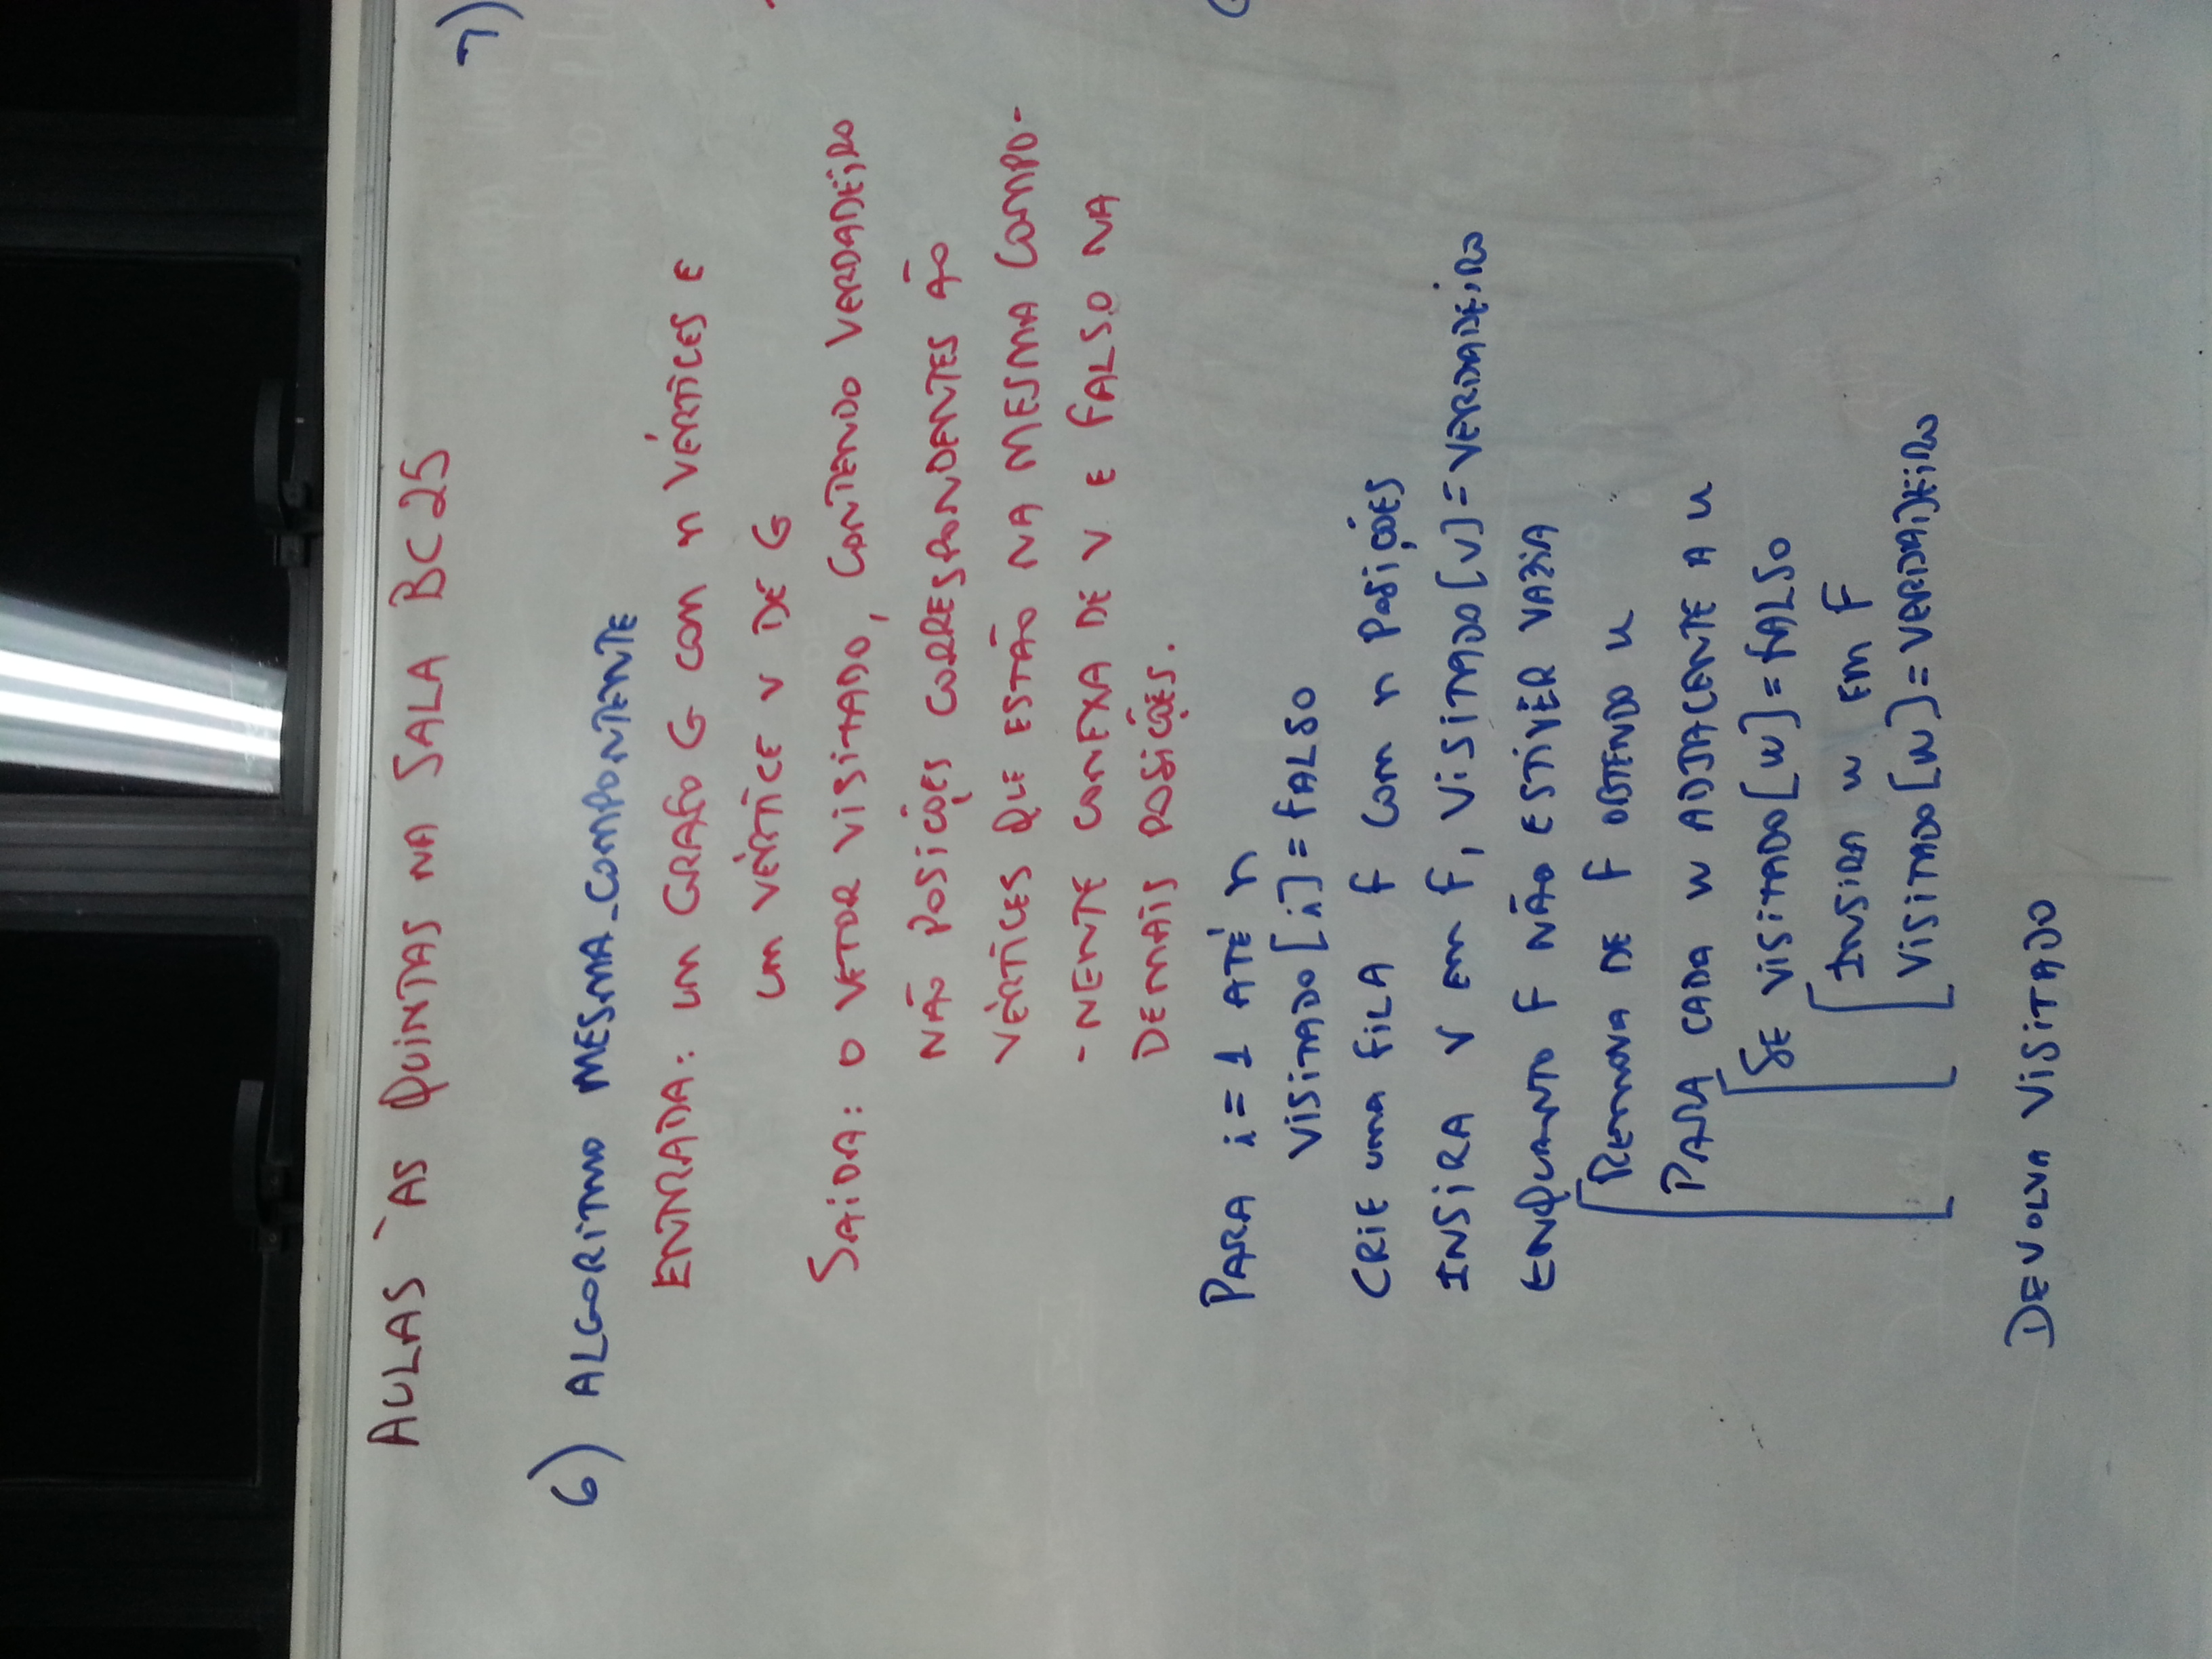 AULAS ÀS QUINTAS NA SALA BC25
7)
6) ALGORITMO MESMA_COMPONTENTE
ENTRADA: UM GRAFO G COM n VÉRTICES E
UM VÉRTICE v DE G
SAÍDA: O VETOR VISITADO, CONTENDO VERDADEIRO
NÃO POSIÇÕES CORRESPONDENTES ÃO
VÉRTICES QUE ESTÃO NA MESMA COMPO-
-NENTE CONEXA DE v E FALSO NA
DEMAIS POSIÇÕES.
PARA i = 1 ATÉ n
VISITADO[i] = FALSO
CRIE UMA FILA F COM n POSIÇÕES
INSIRA v EM F, VISITADO[v] = VERDADEIRO
ENQUANTO F NÃO ESTIVER VAZIA
REMOVA DE F OBTENDO u
PARA CADA w ADJACENTE A u
SE VISITADO[w] = FALSO
INSIRA w EM F
VISITADO[w] = VERDADEIRO
DEVOLVA VISITADO